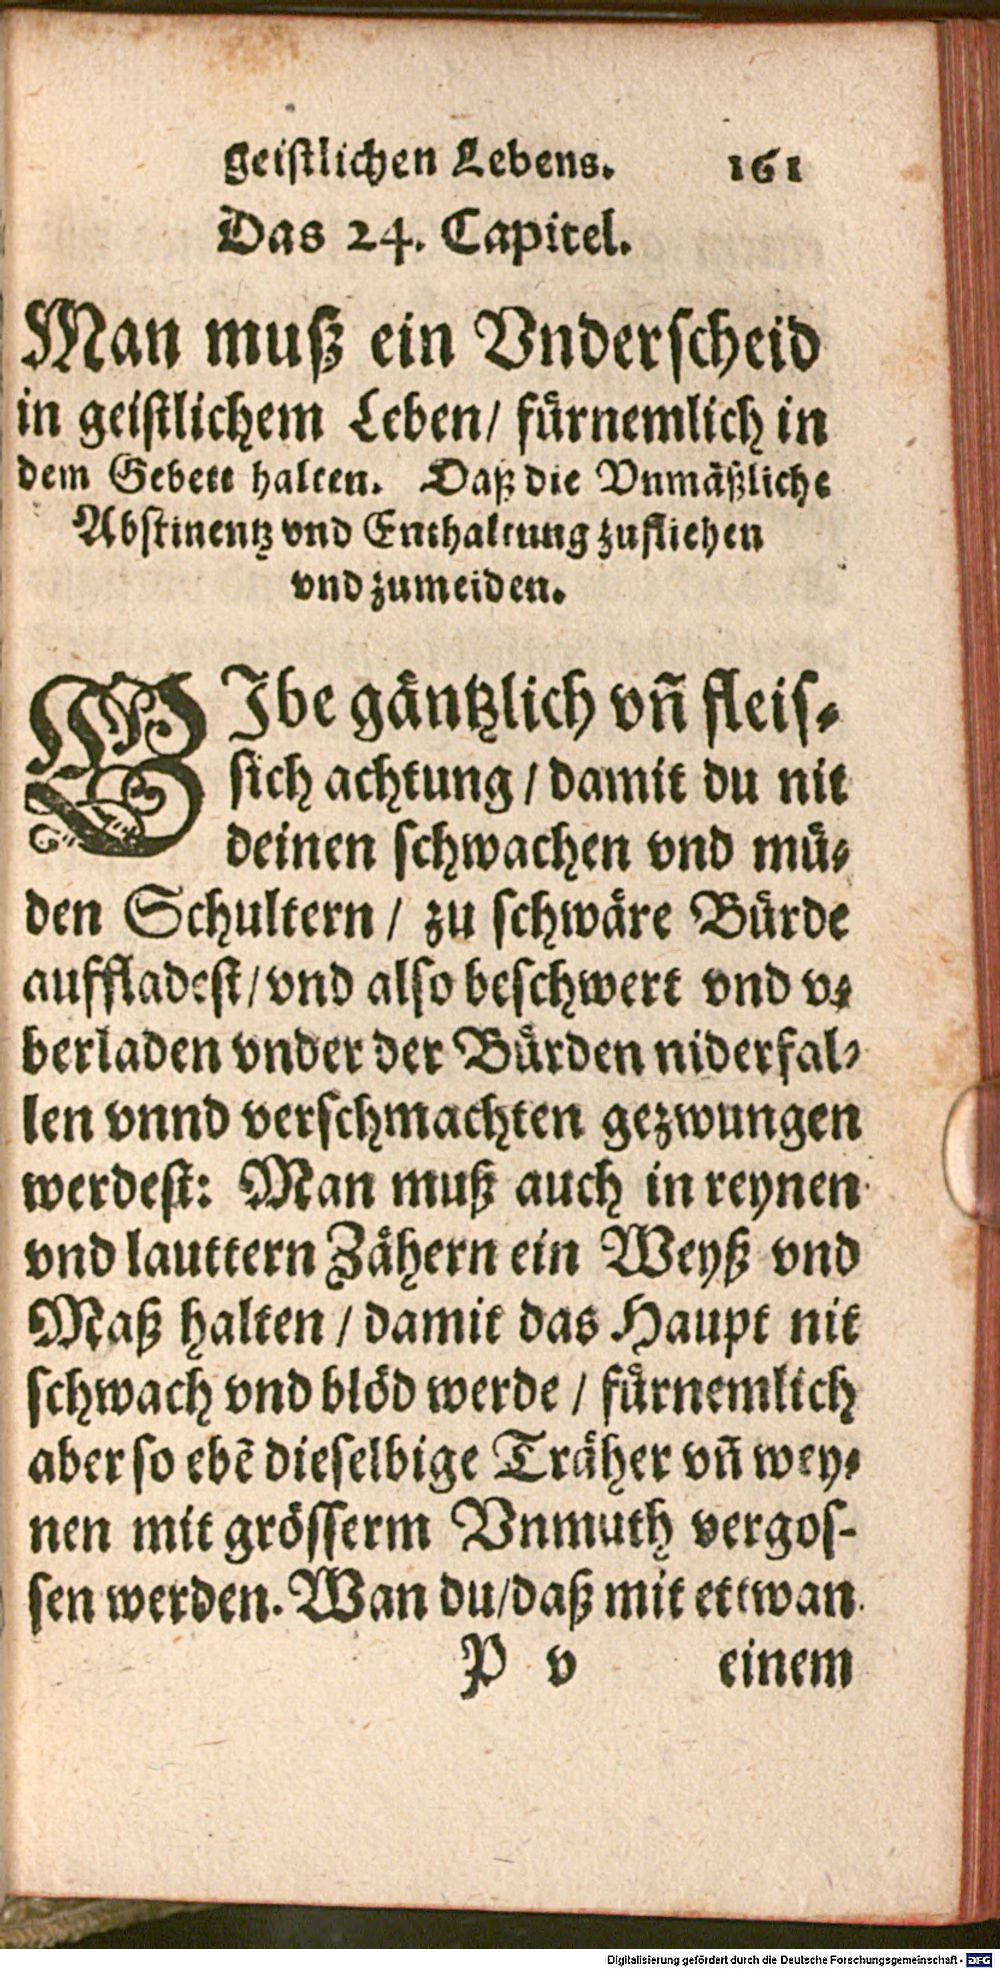 geistlichen Lebens. 161
Das 24. Capitel.
Man muß ein Vnderscheid
in geistlichem Leben/ fürnemlich in
dem Gebett halten. Daß die Vnmäßliche
Abstinentz vnd Enthaltung zufliehen
vnd zumeiden.
GIbe gäntzlich vñ fleis-
sich achtung / damit du nit
deinen schwachen vnd mü-
den Schultern / zu schwäre Bürde
auffladest / vnd also beschwert vnd v-
berladen vnder der Bürden niderfal-
len vnnd verschmachten gezwungen
werdest: Man muß auch in reynen
vnd lauttern Zähern ein Weyß vnd
Maß halten / damit das Haupt nit
schwach vnd blöd werde / fürnemlich
aber so ebē dieselbige Träher vñ wey-
nen mit grösserm Vnmuth vergos-
sen werden. Wan du/daß mit ettwan
P v einem
Digitalisierung gefördert durch die Deutsche Forschungsgemeinschaft - DFG